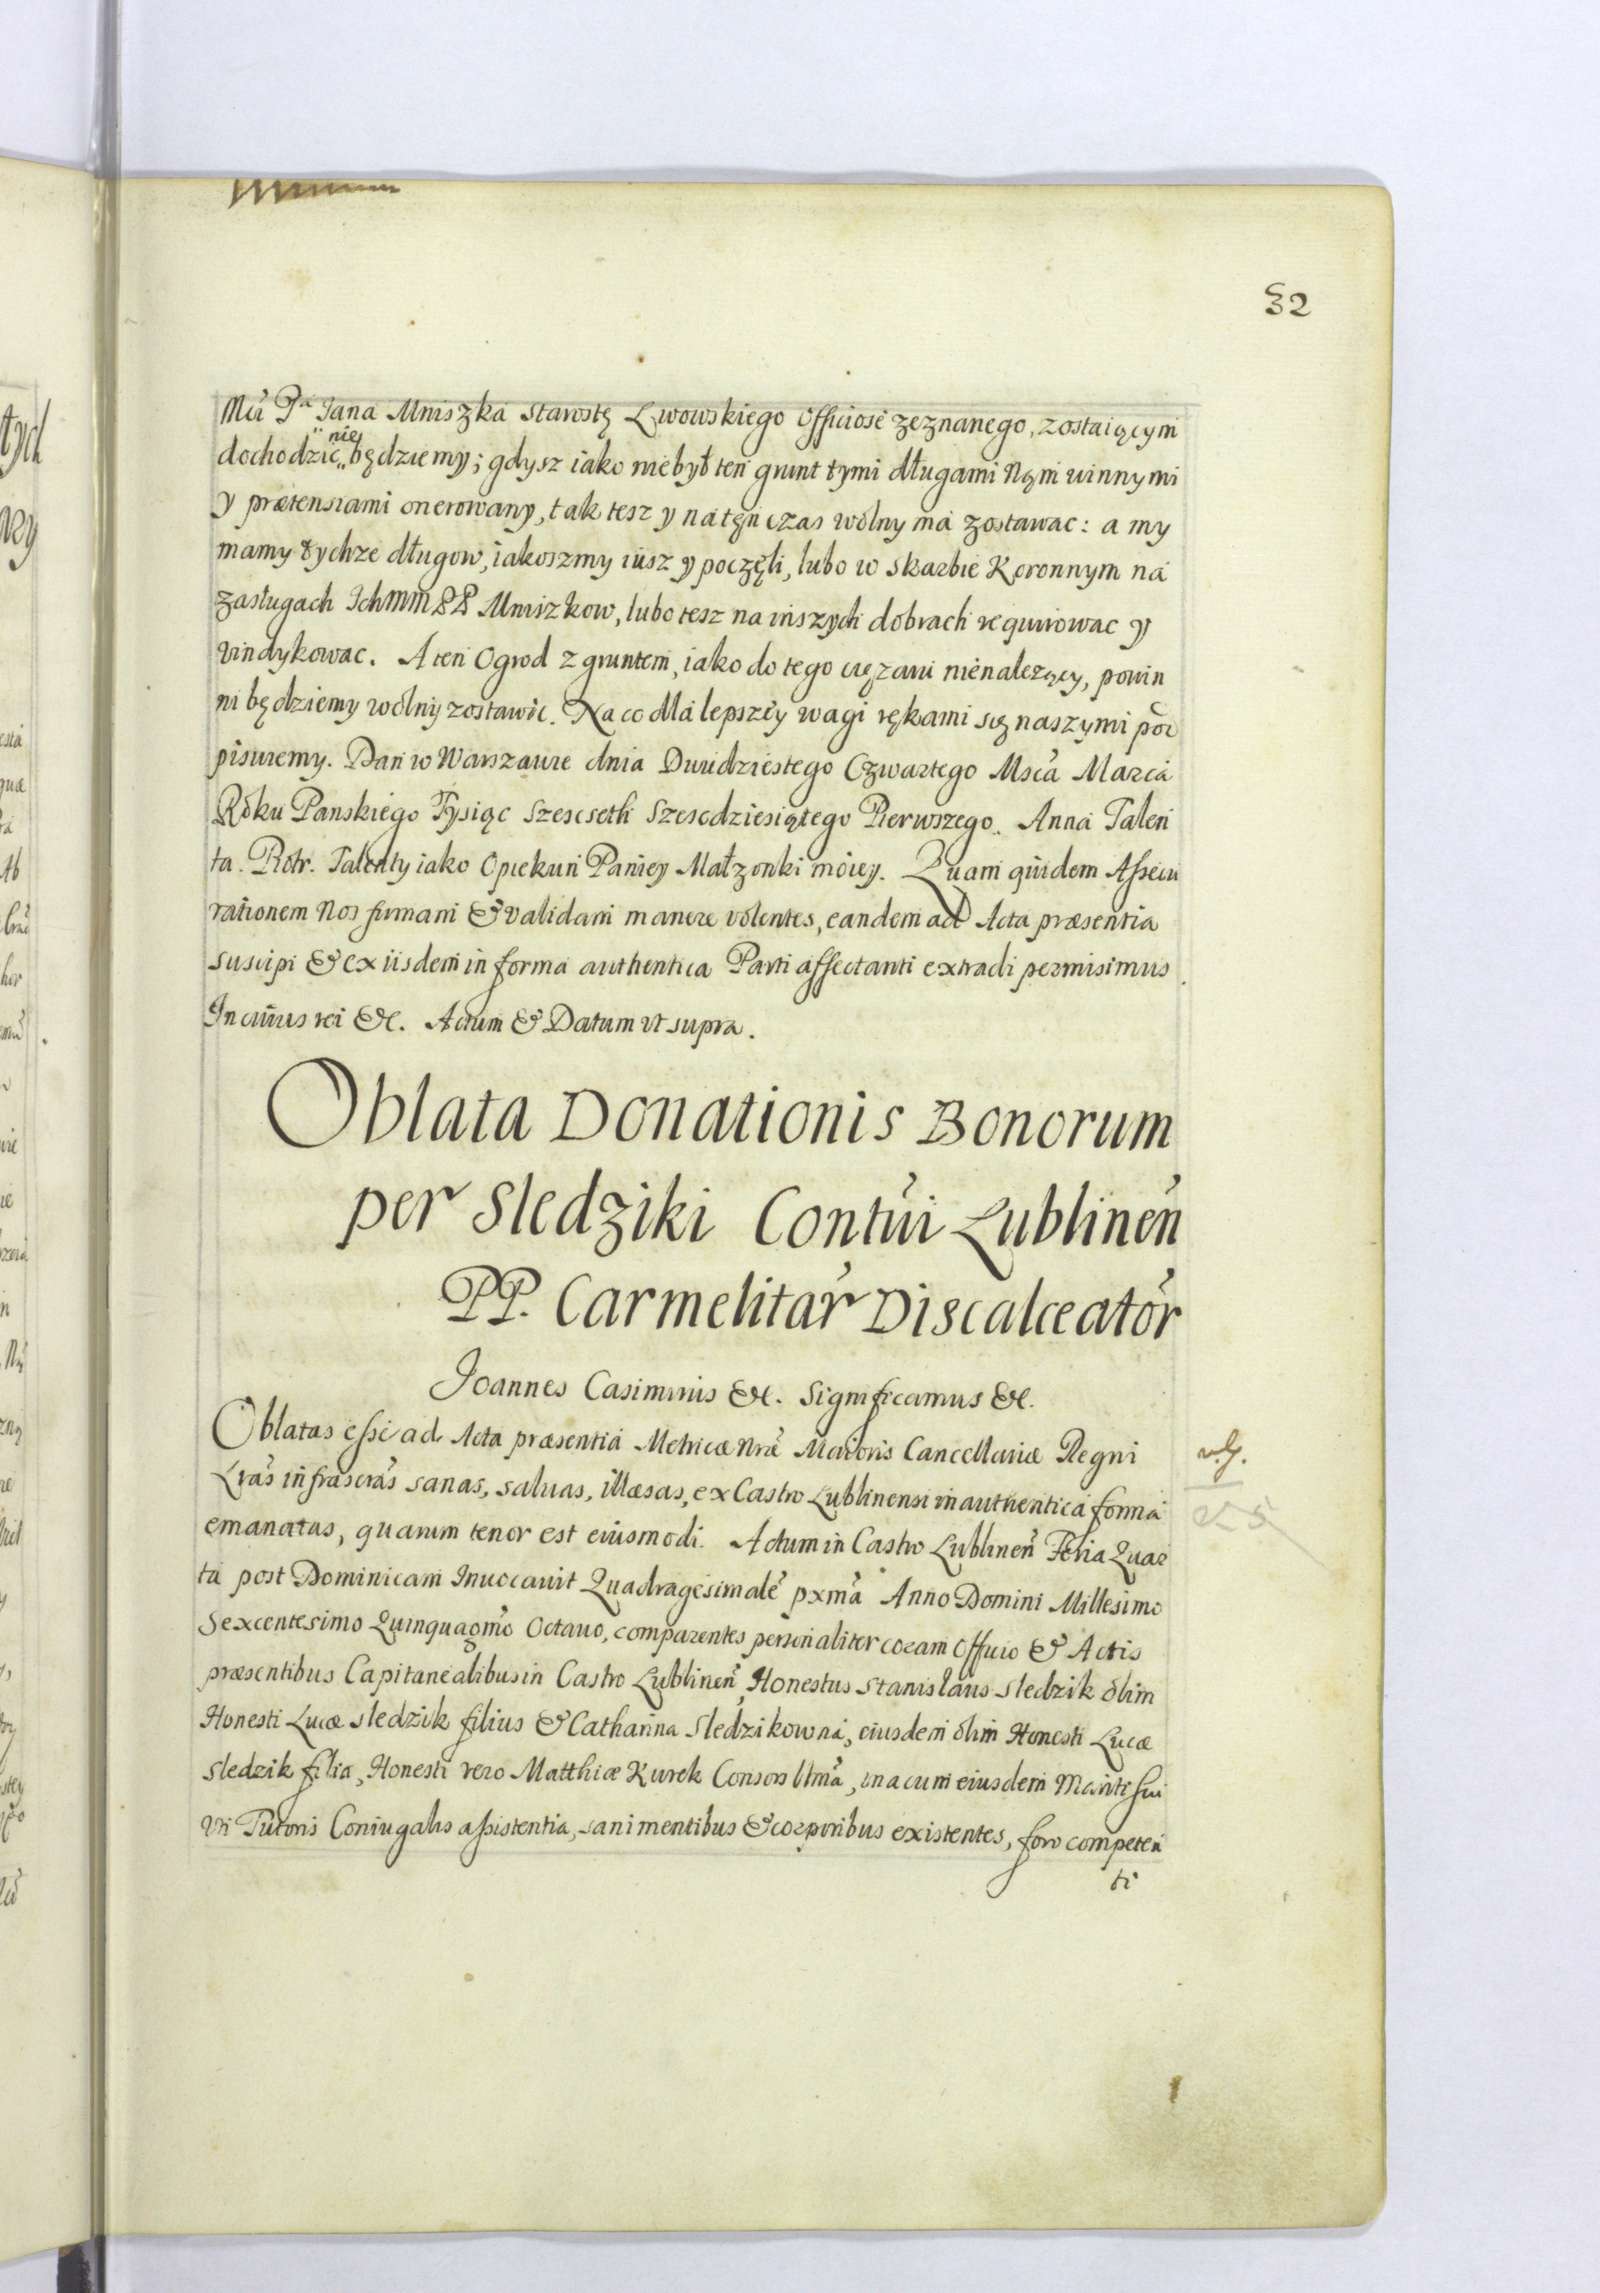 32
Mci Pa Jana Mniszka Starostę Lwowskiego officiose zeznanego, zostaiącymi
dochodzic nie będziemy; gdysz iako nie był ten grunt tymi długami Nąm winnymi
y prætensiami onerowany, tak tesz y na tęn czas wolny ma zostawac: a my
mamy tychze długow, iakoszmy iusz y poczęli, lubo w skarbie Koronnym na
zasługach Ich mm PP Mniszkow, lubo tesz na inszych dobrach requirowac y
vindykowac. A ten Ogrod z gruntem, iako do tego cięzaru nienalezący, powin
ni będziemy wolny zostawic. Na co dla lepszey wagi rękami się naszymi pod
pisuiemy. Dan w Warszawie dnia Dwudziestego Czwartego Msca Marca
Roku Panskiego Tysiąc Szescseth Szescdziesiątego Pierwszego. Anna Talen
ta. Piotr. Talenty iako Opiekun Paniey Małzonki moiey. Quam quidem Assecu
rationem Nos firmam & validam manere volentes, eandem ad Acta præsentia
suscipi & ex iisdem in forma authentica Parti affectanti extradi permisimus.
In cuius rei &c. Actum & Datum vt supra.
Oblata Donationis Bonorum
per Sledziki Contui Lublinen
PP. Carmelitar Discalceator
Joannes Casimirus &c. Significamus &c.
Oblatas esse ad Acta præsentia Metricæ Nræ Maioris Cancellariæ Regni
Lras infrascras sanas, saluas, illæsas, ex Castro Lublinensi in authentica forma
emanatas, quarum tenor est eiusmodi. Actum in Castro Lublinen Feria Quar
ta post Dominicam Inuocauit Quadragesimale pxma Anno Domini Millesimo
Sexcentesimo Quinquagmo Octauo, comparentes personaliter coram Officio & Actis
præsentibus Capitanealibus in Castro Lublinen Honestus Stanislaus Sledzik olim
Honesti Lucæ Sledzik filius & Catharina Sledzikowna, eiusdem olim Honesti Lucæ
Sledzik filia, Honesti vero Matthiæ Kurek Consors ltma, una cum eiusdem Mariti sui
vti Tutoris Coniugalis assistentia, sani mentibus & corporibus existentes, foro competen
ti